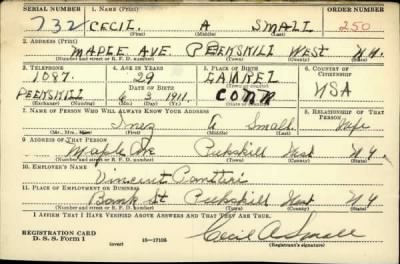 SERIAL NUMBER 1. NAME (Print) ORDER NUMBER
732 CECIL. A SMALL 250
(First) (Middle) (Last)
2. ADDRESS (Print)
MAPLE AVE PEEKSKILL WEST N.Y.
(Number and street or R. F. D. number) (Town) (County) (State)
3. TELEPHONE 4. AGE IN YEARS 5. PLACE OF BIRTH 6. COUNTRY OF CITIZENSHIP
1087. 29
DATE OF BIRTH (Town or county)
PEEKSKILL 6 3 1911. CONN USA
(Exchange) (Number) (Mo.) (Day) (Yr.) (State or country)
7. NAME OF PERSON WHO WILL ALWAYS KNOW YOUR ADDRESS 8. RELATIONSHIP OF THAT PERSON
Inez Small Wife
(Mr., Mrs., Miss) (First) (Middle) (Last)
9. ADDRESS OF THAT PERSON
Maple Ave Pukskill West N Y
(Number and street or R. F. D. number) (Town) (County) (State)
10. EMPLOYER'S NAME
Vincent
11. PLACE OF EMPLOYMENT OR BUSINESS
Bank St Pukskill West N Y
(Number and street or R. F. D. number) (Town) (County) (State)
I AFFIRM THAT I HAVE VERIFIED ABOVE ANSWERS AND THAT THEY ARE TRUE.
REGISTRATION CARD
D. S. S. Form 1 (over) 16—17105 Cecil A Small
(Registrant's signature)